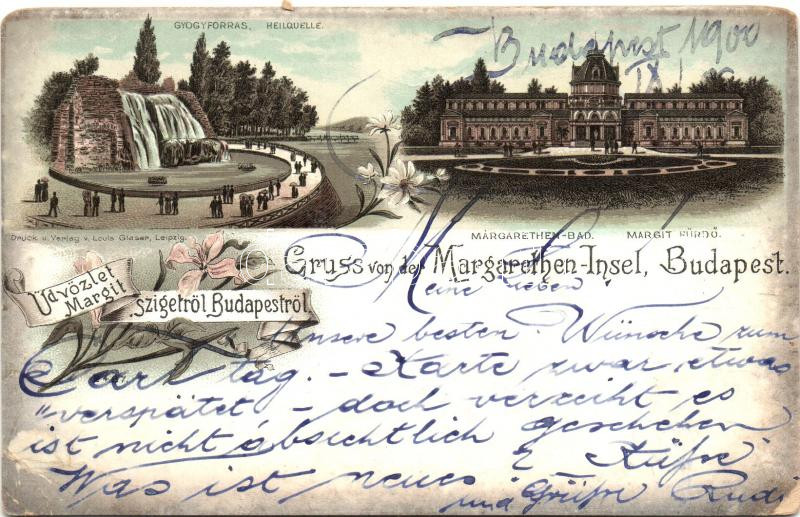 GYÓGYFORRÁS, HEILQUELLE.
Budapest 1900
IX
Druck u. Verlag v. Louis Glaser, Leipzig.
MARGARETHEN-BAD. MARGIT FÜRDŐ.
Gruss von der Margarethen-Insel, Budapest.
Üdvözlet
Margit
Szigetről Budapestről
Meine Lieben
Unsere besten Wünsche zum
tag. - Karte zwar etwas
"verspätet - doch verzeiht es
ist nicht absichtlich geschehen
Was ist neues ? Küsse
und Grüsse Rudi